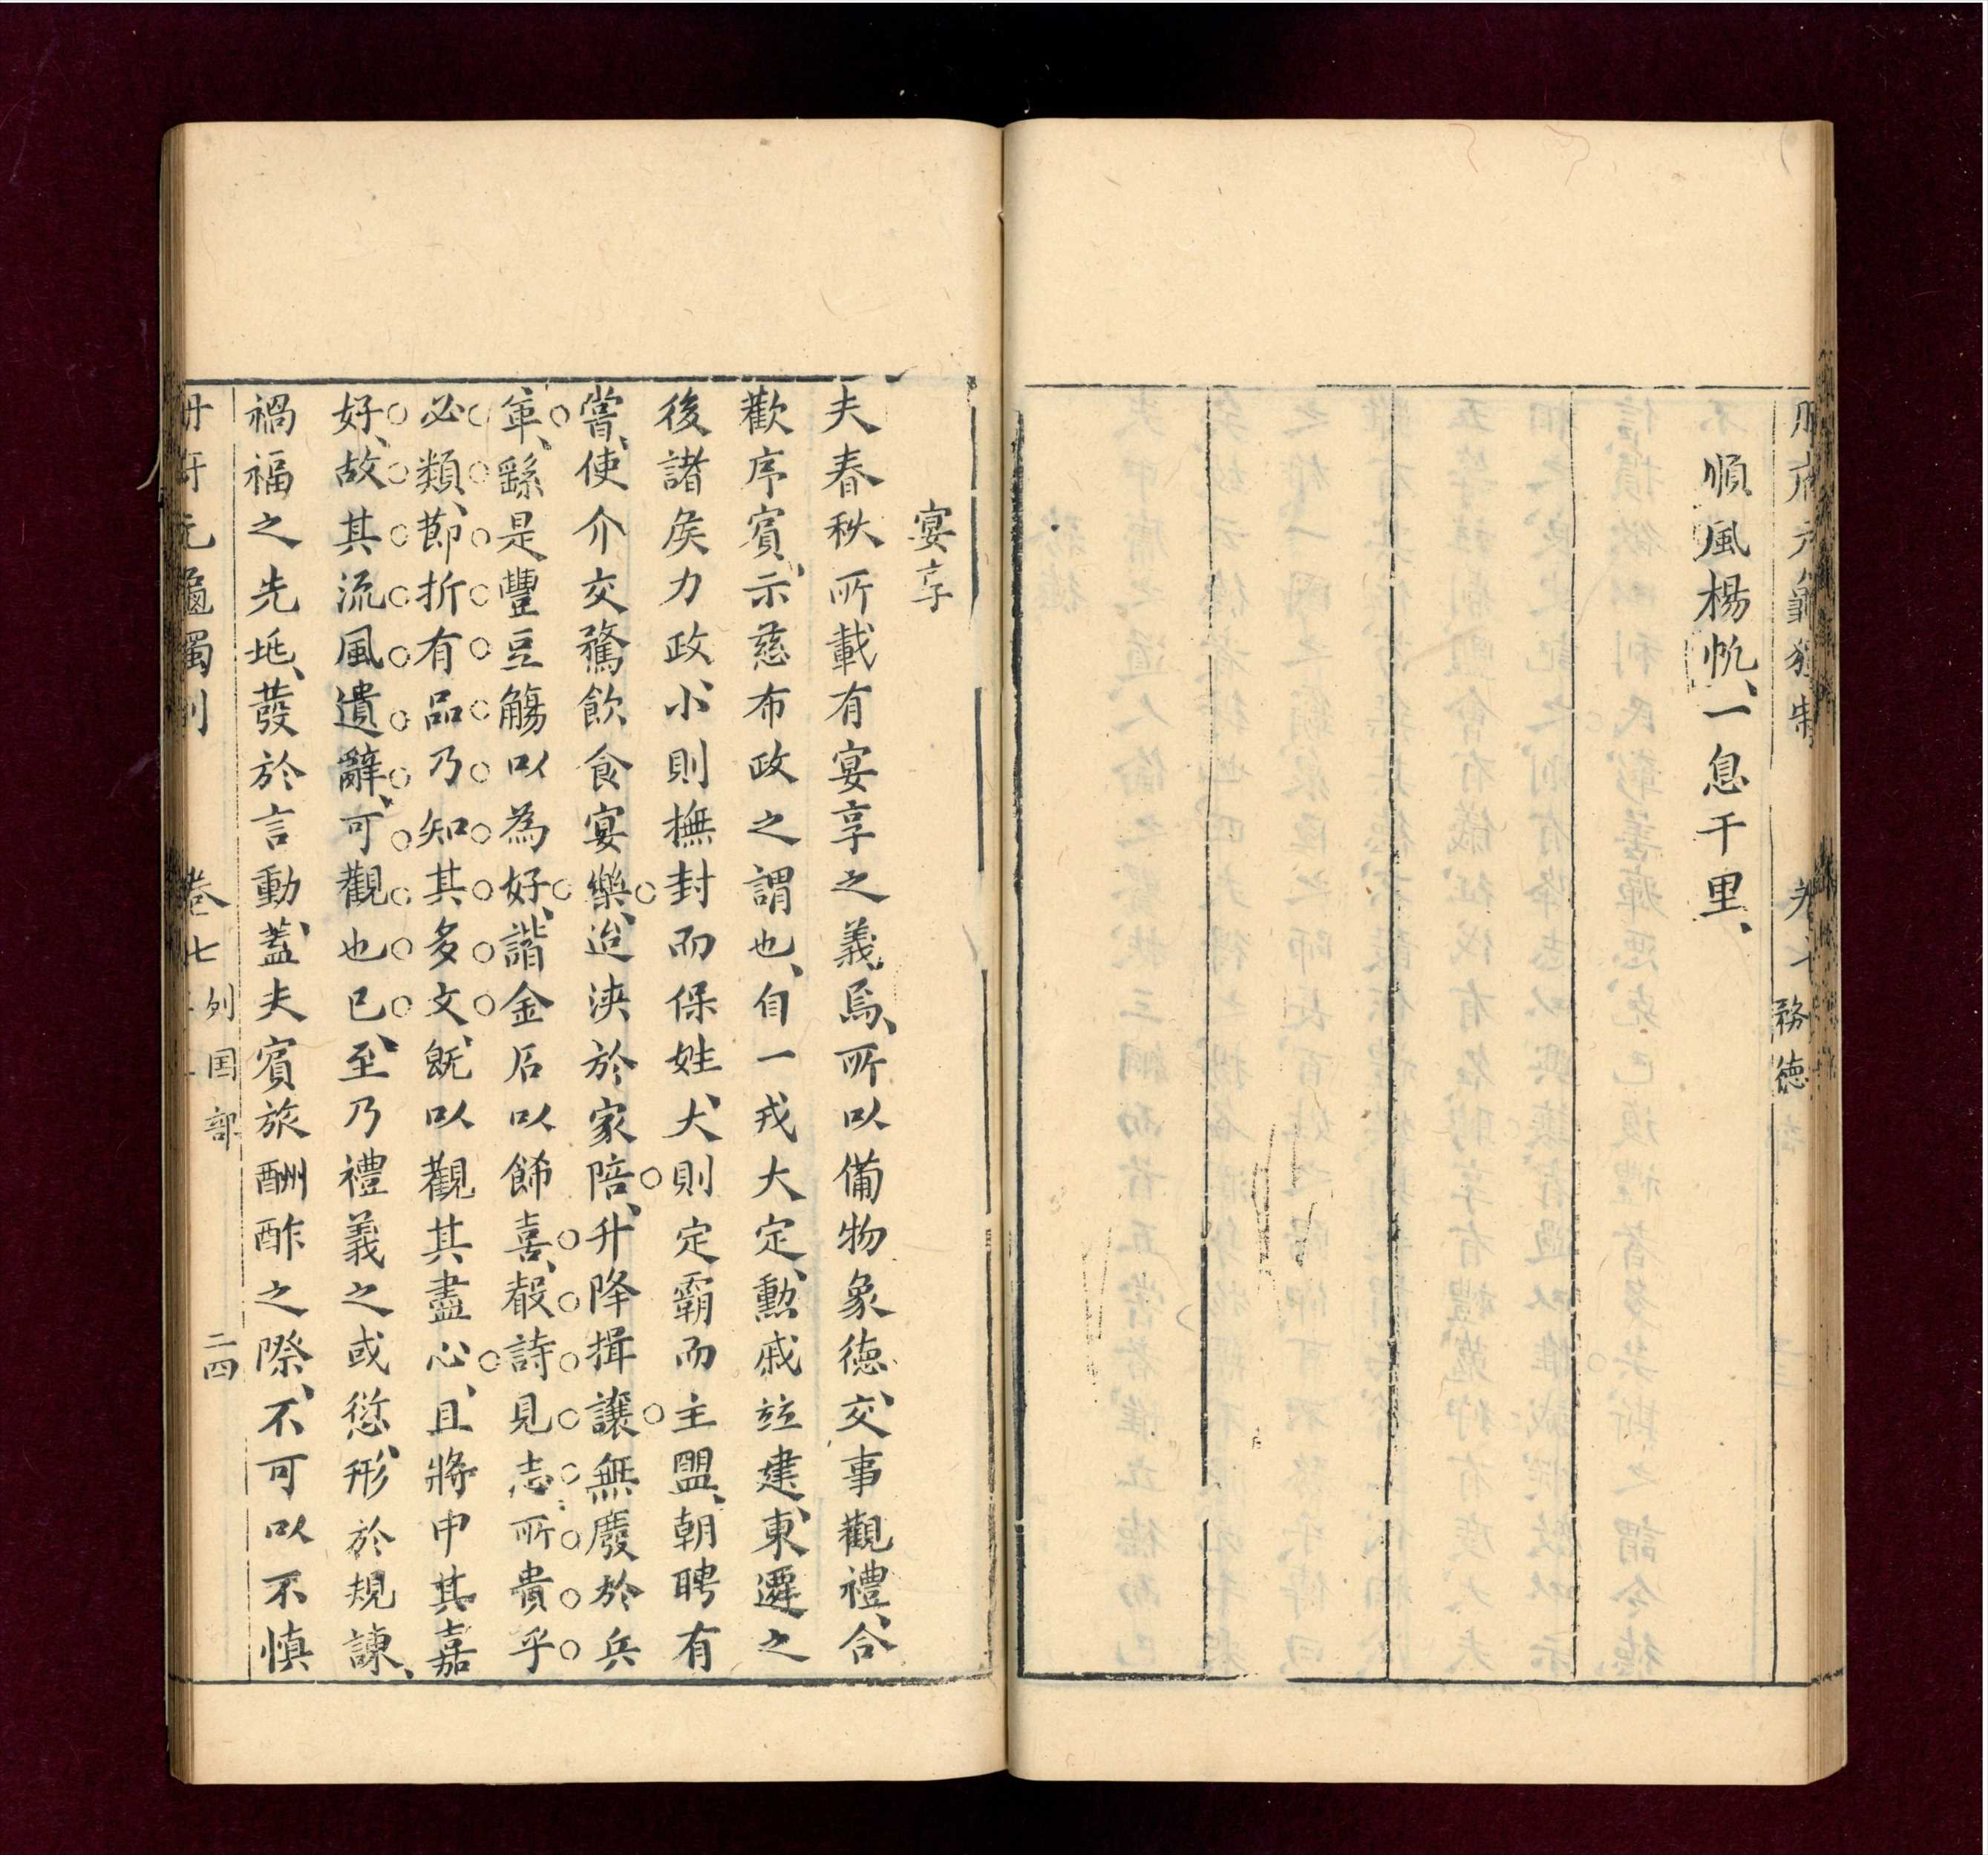 務德
順風楊帆、一息千里、
宴享
夫春秋所載有宴享之義焉、所以備物象德、交事觀禮、合
歡序賓、示慈布政之謂也、自一戎大定、勳戚竝建、東遷之
後諸侯力政、小則撫封而保姓、大則定霸而主盟、朝聘有
嘗、使介交騖飲食宴樂、迨浹於家陪、升降揖讓無廢於兵
車、繇是豐豆觴以為好、諧金石以餙喜、殽詩見志所貴乎
必類、節折有品乃知其多文、旣以觀其盡心、且將申其嘉
好、故其流風遺辭、可觀也已、至乃禮義之或愆、形於規諫、
禍福之先兆、發於言動、蓋夫賓旅酬酢之際、不可以不慎
卷七 列国部 二四